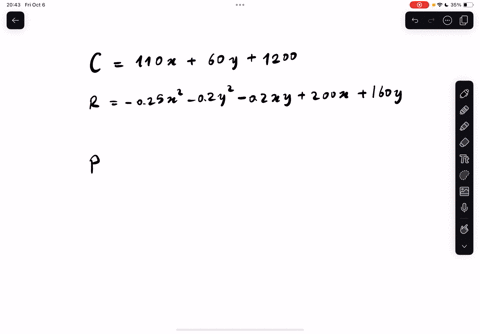 20:43 Fri Oct 6
35%
C = 110x + 60y + 1200
R = -0.25x² - 0.2y² - 0.2xy + 200x + 160y
P